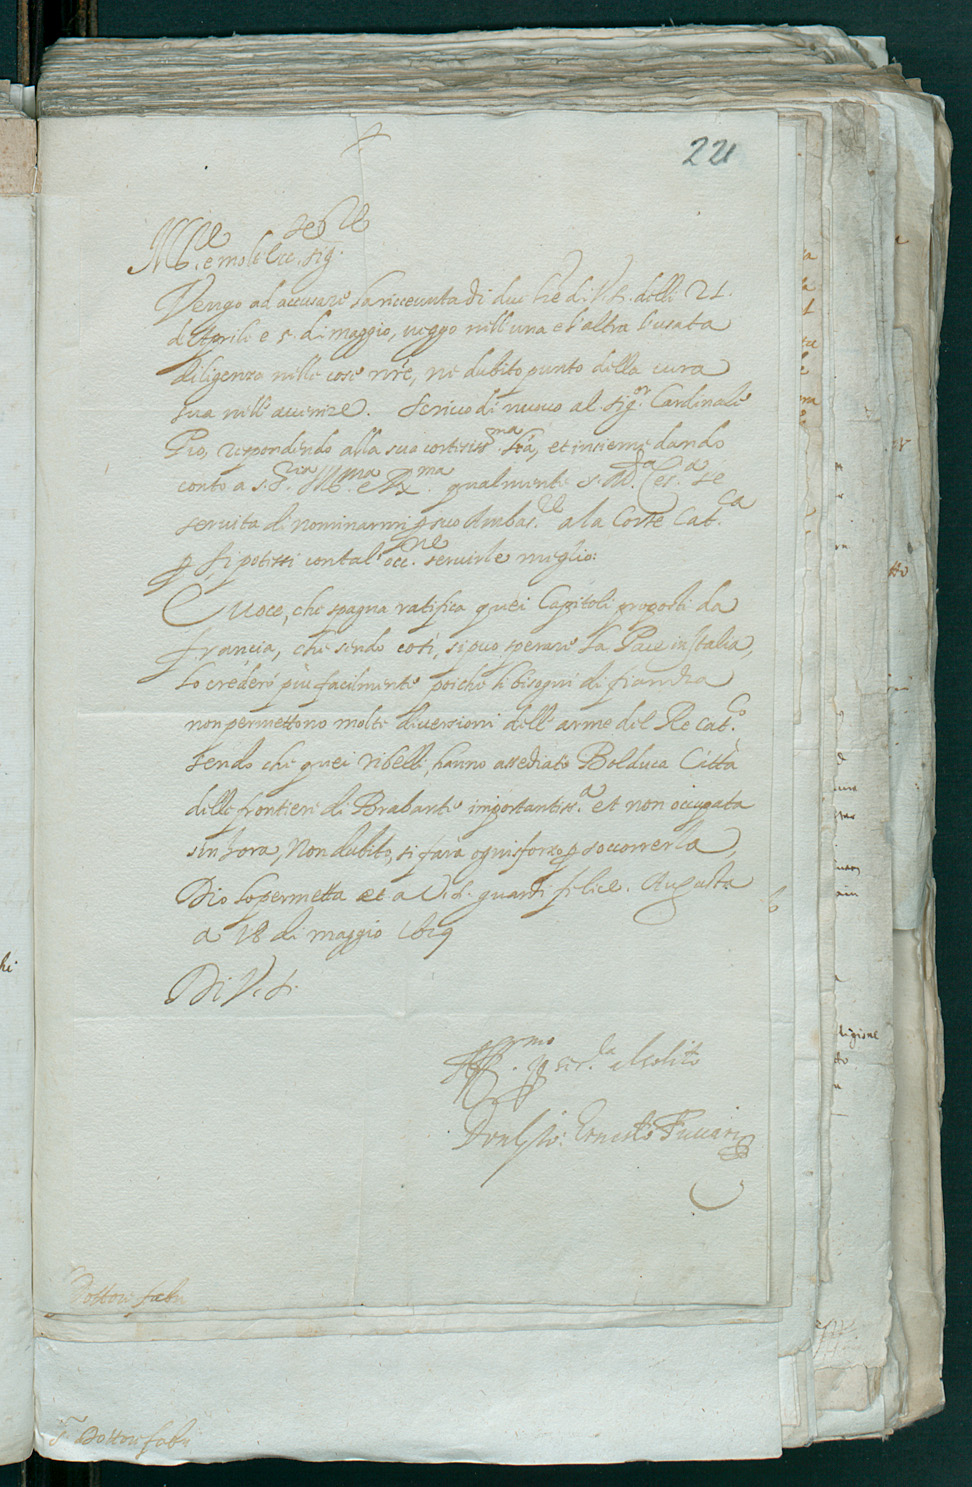 221
Ill.re e molto Ecc. Sig.
Vengo ad accusare la riceuuta di due l're di V. S. delli 21.
di Aprile e 5. di maggio, ueggo nell'una e l'altra l'usata
diligenza nelle cose n're, ne dubito punto della cura
sua nell'auuenire. Scriuo di nuouo al Sig.or Cardinale
Pio, respondendo alla sua cortesiss.ma l'ra, et insieme dando
conto a S. S.ria Ill.ma e R.ma qualmente S. M.tà Ces.a se
seruita di nominarmi p suo Ambas.re a la Corte Cat.ca
p si potessi con tal occ.ne seruirle meglio:
E uoce, che spagna ratifica quei Capitoli proposti da
francia, che sendo così, si può sperare la Pace in Italia,
lo crederò più facilmente poiche li bisogni di fiandra
non permettono molte diuersioni dell'arme del Re Cat.co
sendo che quei ribelli, hanno assediato Bolduca Città
delle frontiere di Brabante importantiss.a et non occupata
sin hora, Non dubito, si farà ogni sforzo p soccorrerla,
Dio lo permetta et a V. S. guardi felice. Augusta
a 18 di maggio 1629
Di V. S.
Aff.mo p ser.la al solito
Don Gio: Ernesto Fuccari
Dottore fabri
S.r Dottore fabri